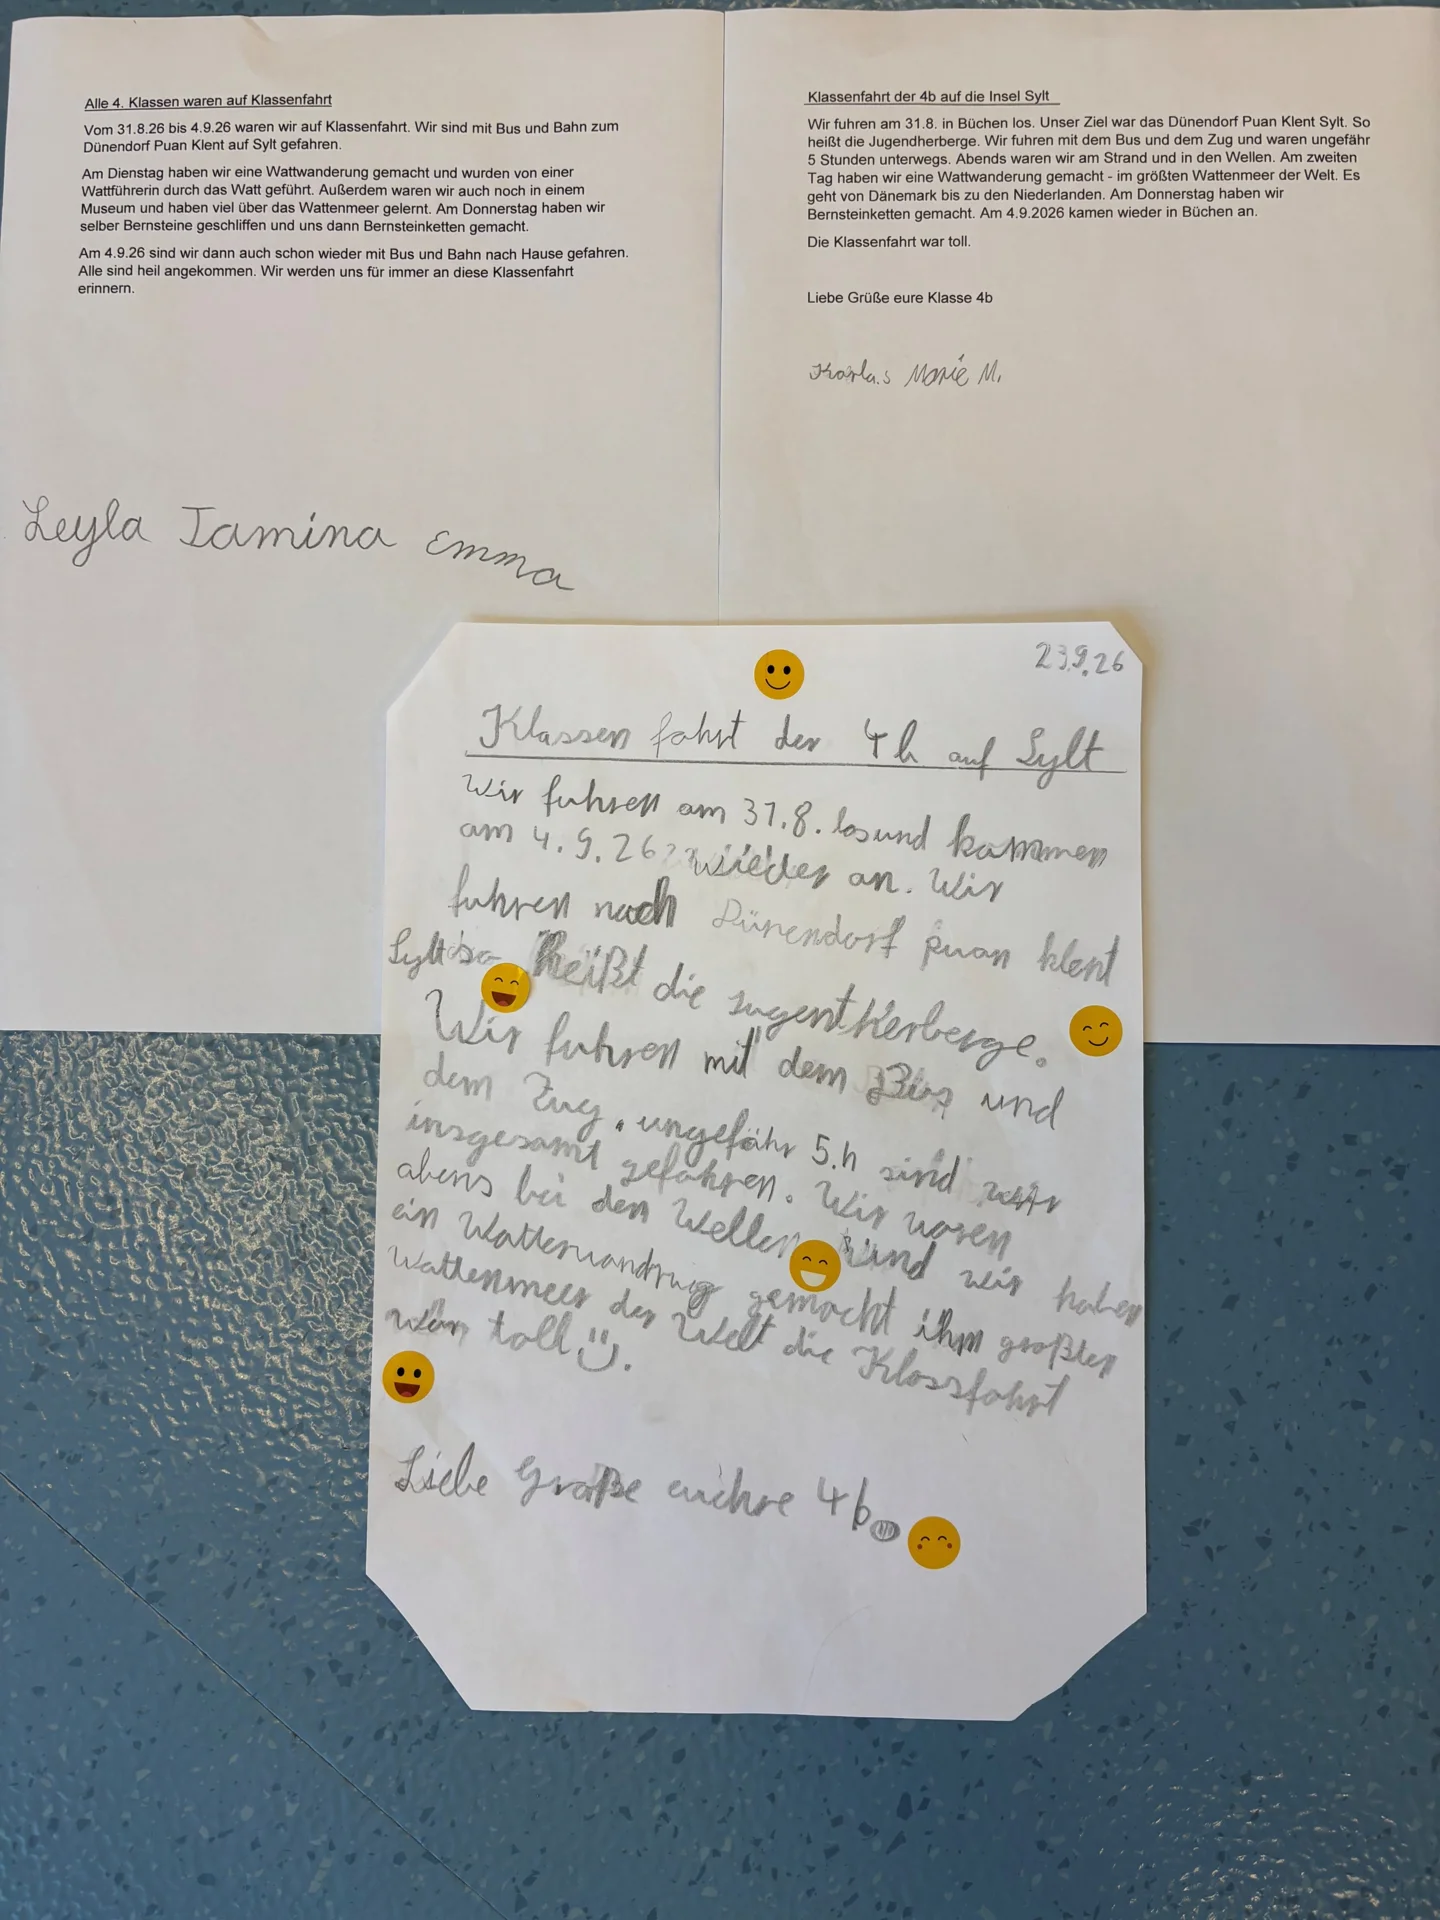 Alle 4. Klassen waren auf Klassenfahrt
Vom 31.8.26 bis 4.9.26 waren wir auf Klassenfahrt. Wir sind mit Bus und Bahn zum
Dünendorf Puan Klent auf Sylt gefahren.
Am Dienstag haben wir eine Wattwanderung gemacht und wurden von einer
Wattführerin durch das Watt geführt. Außerdem waren wir auch noch in einem
Museum und haben viel über das Wattenmeer gelernt. Am Donnerstag haben wir
selber Bernsteine geschliffen und uns dann Bernsteinketten gemacht.
Am 4.9.26 sind wir dann auch schon wieder mit Bus und Bahn nach Hause gefahren.
Alle sind heil angekommen. Wir werden uns für immer an diese Klassenfahrt
erinnern.
Leyla Jamina Emma
Klassenfahrt der 4b auf die Insel Sylt
Wir fuhren am 31.8. in Büchen los. Unser Ziel war das Dünendorf Puan Klent Sylt. So
heißt die Jugendherberge. Wir fuhren mit dem Bus und dem Zug und waren ungefähr
5 Stunden unterwegs. Abends waren wir am Strand und in den Wellen. Am zweiten
Tag haben wir eine Wattwanderung gemacht - im größten Wattenmeer der Welt. Es
geht von Dänemark bis zu den Niederlanden. Am Donnerstag haben wir
Bernsteinketten gemacht. Am 4.9.2026 kamen wieder in Büchen an.
Die Klassenfahrt war toll.
Liebe Grüße eure Klasse 4b
Karla.s Marie M.
23.9.26
Klassen fahrt der 4b auf Sylt
Wir fuhren am 31.8. los und kammen
am 4.9.26 wieder an. Wir
fuhren nach Dünendorf puan klent
Sylt so heißt die Jugentherberge.
Wir fuhren mit dem Bus und
dem Zug. ungefähr 5.h sind wir
insgesamt gefahren. Wir waren
abens bei den Wellen und wir haben
ein Wattenwandrung gemacht ihm größten
Wattenmeer der Welt die Klassfahrt
war toll
Liebe Grüße euchre 4b